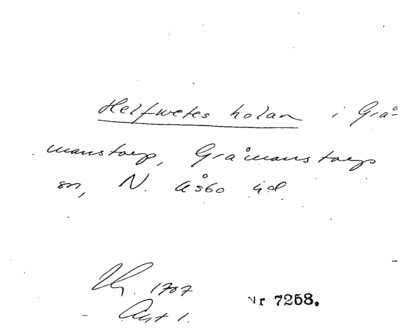 Helfwetes holan i Grå-
manstorp, Gråmanstorps
sn, N. Åsbo hd.
1707
Avt 1.
Nr 7258.